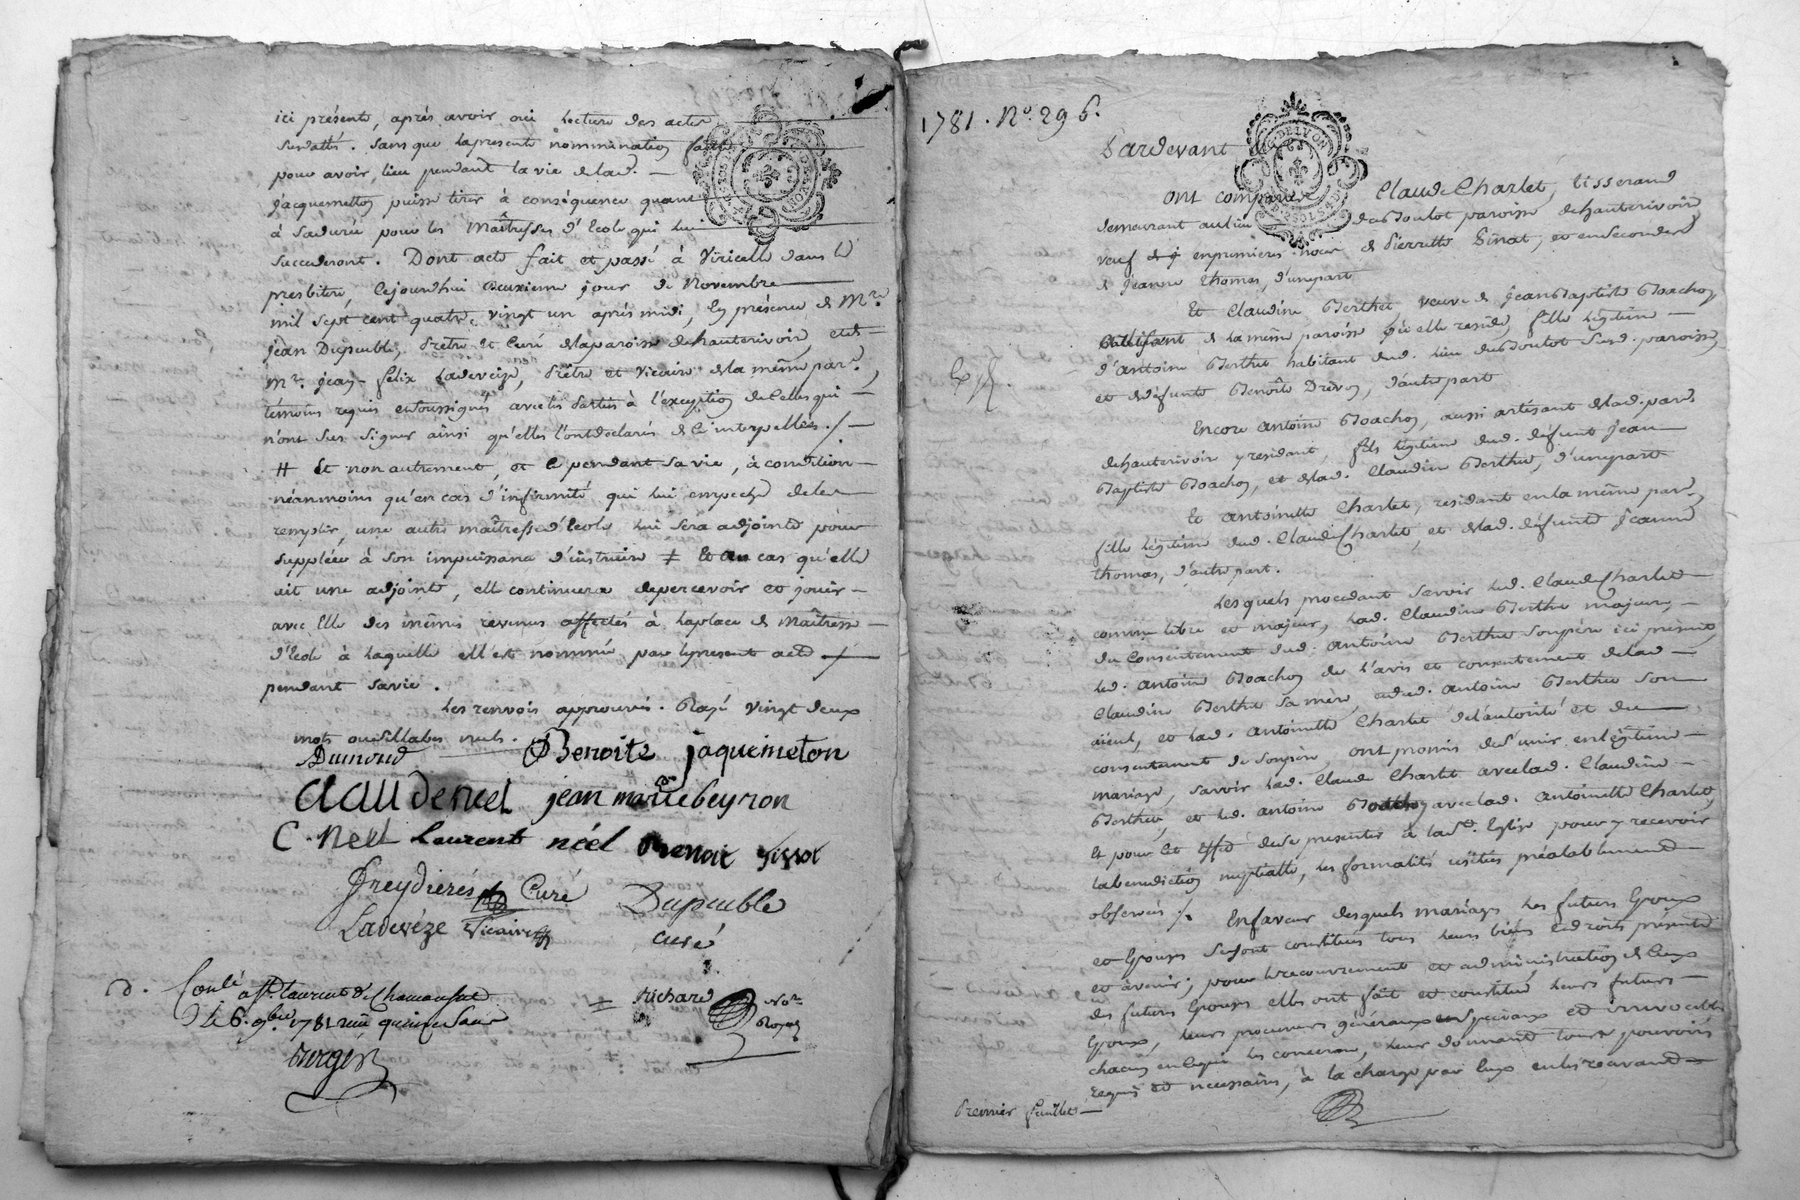 ici présente, après avoir oui Lecture des actes
susdattés. Sans que la presente nommination faite
pour avoir lieu pendant la vie de lad.
Jacquemetton puisse tirer à conséquence quant
à Sa durée pour les Maîtresses d'Ecole qui lui
succederont. Dont acte fait et passé à Viricelle dans le
presbitere, cejourdhui deuxieme jour de Novembre
mil sept cent quatre vingt un après midi, En présence de Mre.
jean Dupeuble, Prêtre et Curé de la paroisse de hauterivoir, et de
Mr. jean-felix Ladeveize, Prêtre et Vicaire de la même parse.,
témoins requis et soussignés avec les Parties à l'exception de Celles qui
n'ont Sus Signer ainsi qu'elles l'ont declarés de ce interpellées ./.
# Et non autrement, et ce pendant sa vie, à condition
néanmoins qu'en cas d'infirmité qui lui empeche de les
remplir, une autre maîtresse d'Ecole lui Sera adjointe pour
suppléer à Son impuissance d'instruire ‡ Et au cas qu'elle
ait une adjointe, elle continuera de percevoir et jouir
avec Elle des mêmes revenus affectés à la place de Maîtresse
d'Ecole à laquelle elle est nommée par le present acte
pendant sa vie.
Les renvois approuvés. Rayé vingt deux
mots ou sillabes nuls.
Dumond Benoite jaquemeton
claude neel jean marie beyron
C. neel Laurent néel Benoit Pissot
Freydieres Curé Dupeuble
Ladevéze Vicaire curé
Conlé a St. Laurent de Chamousset = Richard Nore.
le 6. 9bre 1781 reçu quinze Sous Royal
1781. No. 295.
Pardevant
ont comparu Claude Charlet, tisserand
demeurant au lieu du Boulot paroisse de hauterivoir,
veuf en premieres noces de Pierrette Pinat, et en Secondes
de Jeanne Thomas, d'unepart
Et Claudine Berthet veuve de Jean Baptiste Boachon
de la même paroisse où elle reside, fille légitime
d'Antoine Berthet habitant dud. Lieu du Boulot Susd. paroisse,
et de défunte Benoîte Drevon, d'autre part
Encore Antoine Boachon, aussi artisant de lad. parse.
de hauterivoir y residant, fils légitime dud. défunt Jean
Baptiste Boachon, et de lad. Claudine Berthet, d'unepart
Et Antoinette Charlet, residant en la même parse.,
fille légitime dud. Claude Charlet, et de lad. défunte Jeanne
thomas, d'autre part.
Lesquels procedant Savoir led. Claude Charlet
comme libre et majeur, lad. Claudine Berthet majeure,
du Consentement dud. Antoine Berthet Son père ici présent,
led. Antoine Boachon de l'avis et consentement de lad.
Claudine Berthet Sa mère, et dud. Antoine Berthet Son
aieul, et lad. Antoinette Charlet de l'autorité et du
consentement de Sonpère, ont promis de S'unir en légitime
mariage, Savoir led. Claude Charlet avec lad. Claudine
Berthet, et led. Antoine Boachon avec lad. Antoinette Charlet,
Et pour cet effet de se presenter à la Ste. Eglise pour y recevoir
la benediction nuptialle, les formalités usitées préalablement
observées ./. En faveur desquels mariages Les futurs Epoux
et Epouses se sont constitués tous leurs biens et droits présents
et avenir; pour le recouvrement et administration de Ceux
des futures Epouses elles ont fait et constitué leurs futurs
Epoux, leurs procureurs généraux Speciaux et irrevocables
chacun en Ce qui les concerne, leur donnant tous pouvoirs
requis et necessaires, à la charge par Eux en les recevant
Premier feuillet